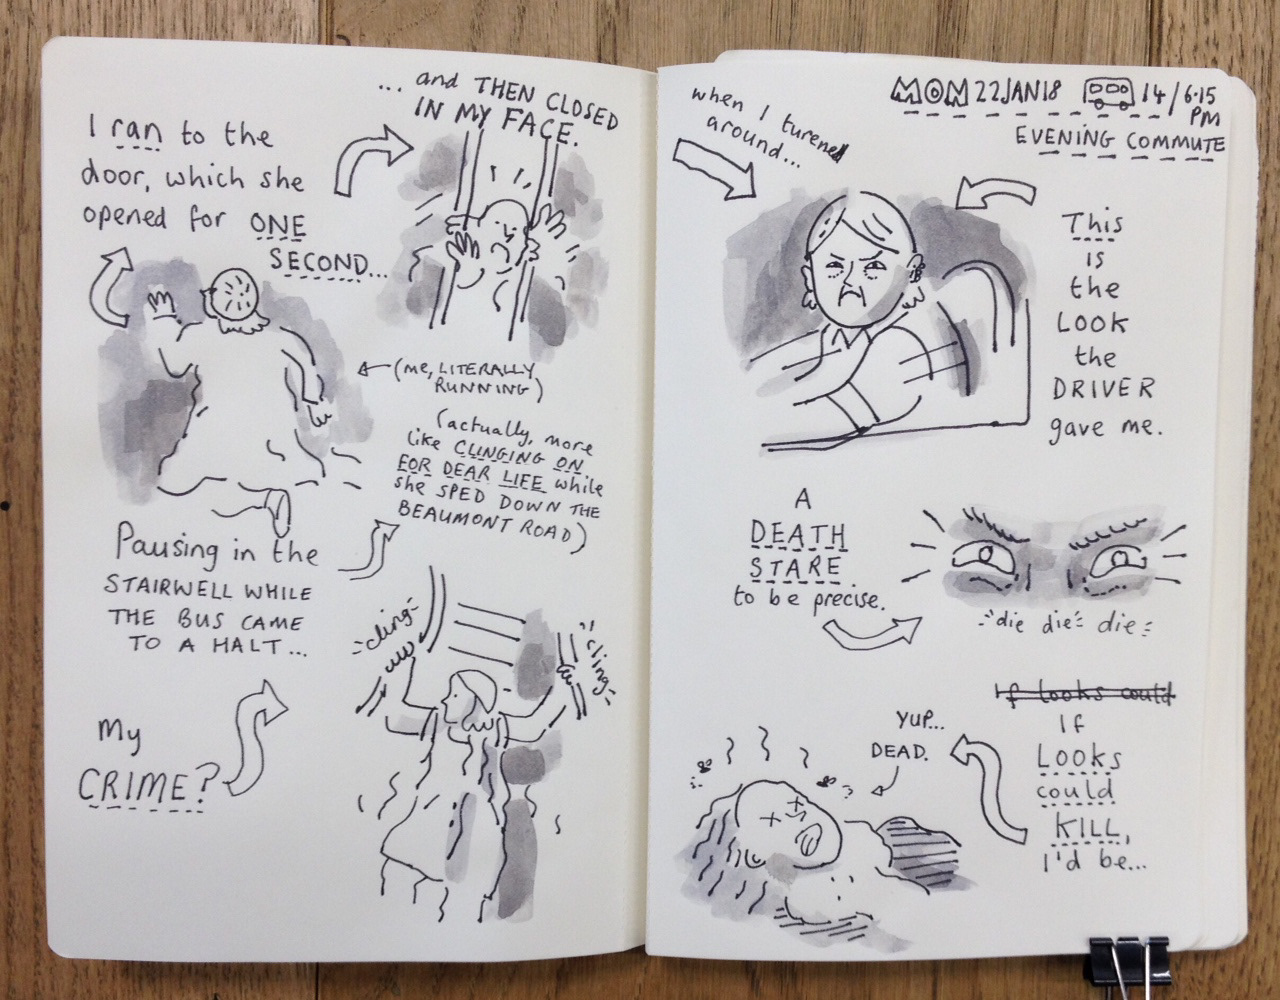 I ran to the
door, which she
opened for ONE
SECOND...
... and THEN CLOSED
IN MY FACE.
(me, LITERALLY
RUNNING)
(actually, more
like CLINGING ON
FOR DEAR LIFE while
she SPED DOWN THE
BEAUMONT ROAD)
Pausing in the
STAIRWELL WHILE
THE BUS CAME
TO A HALT...
cling
cling
My
CRIME?
when I turened
around...
MON 22JAN18 14/6.15
PM
EVENING COMMUTE
This
is
the
LOOK
the
DRIVER
gave me.
A
DEATH
STARE.
to be precise.
die die die
If looks could
If
LOOKS
could
KILL,
I'd be...
YUP...
DEAD.